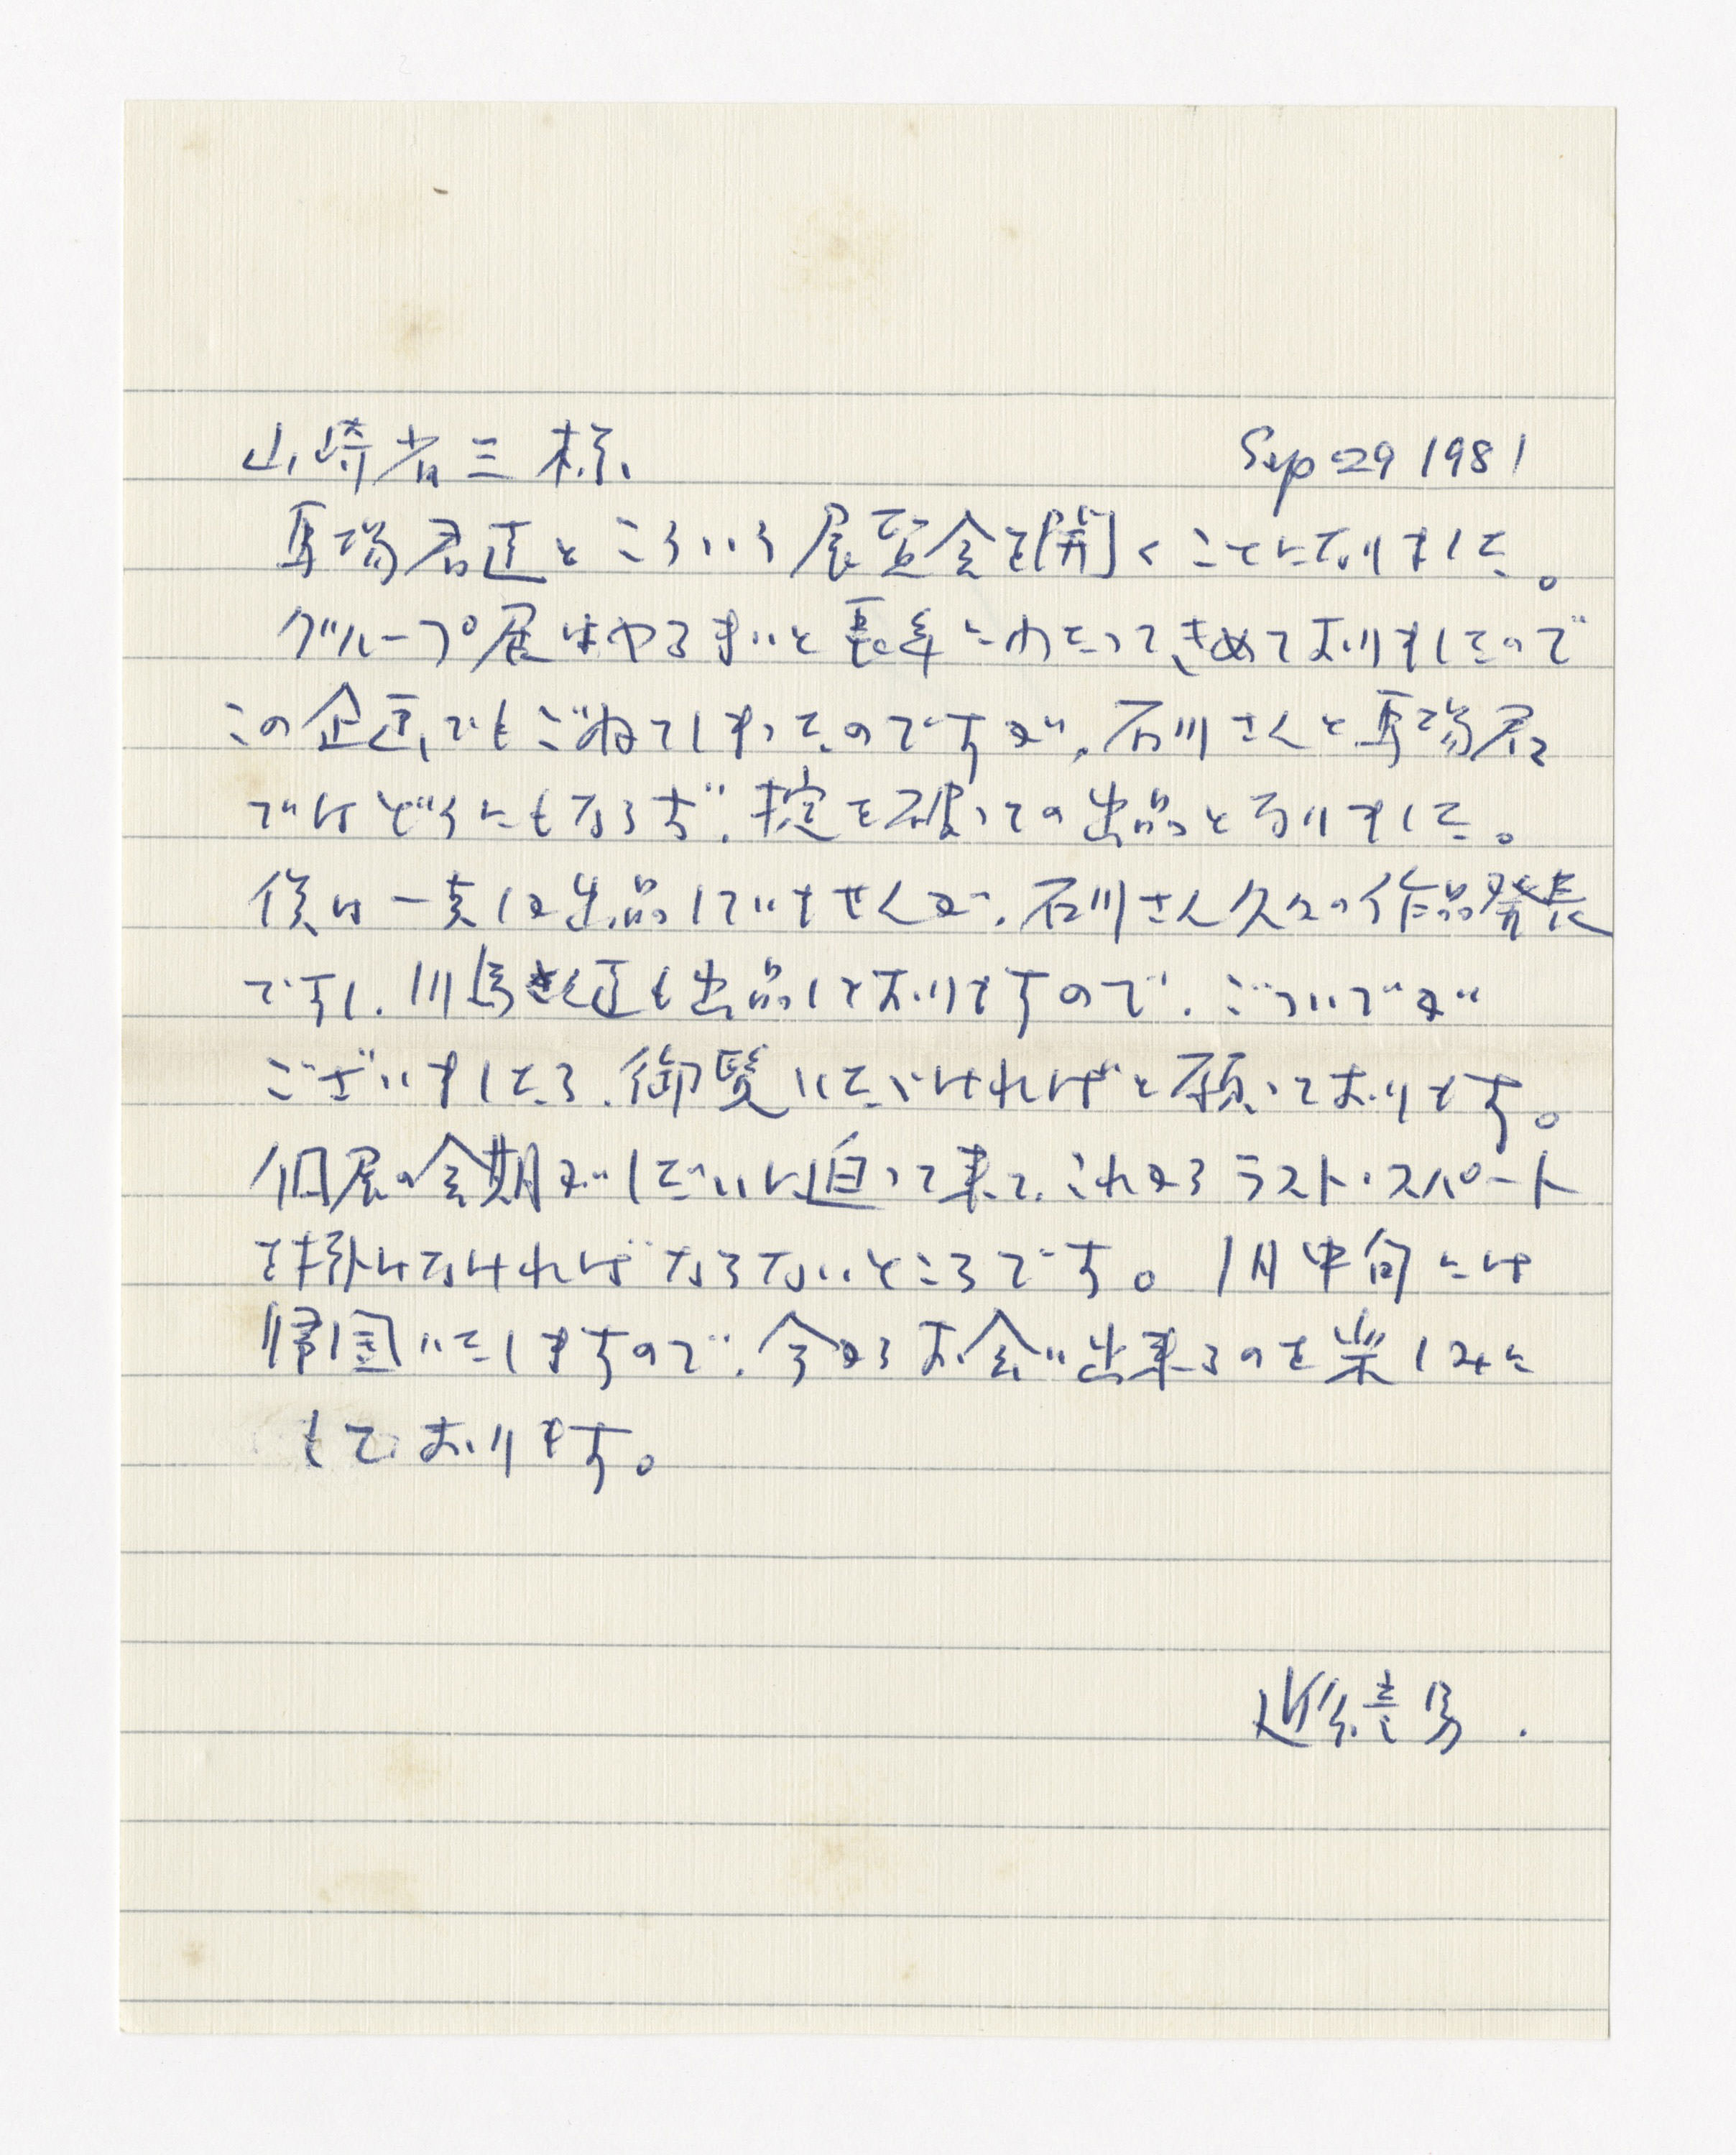 山崎省三様 Sep 29 1981
馬場君達とこういう展覧会を開くことになりました。
グループ展はやるまいと長年にわたってきめておりましたので
この企画でもごねてしまったのですが、石川さんと馬場君
ではどうにもならず、掟を破っての出品となりました。
僕は一点しか出品していませんが、石川さん久々の作品発表
ですし、川島さん達も出品しておりますので、ついでが
ございましたら、御覧いただければと願っております。
個展の会期がしだいに迫って来て、これからラスト・スパート
をかけなければならないところです。1月中旬には
帰国いたしますので、今からお会い出来るのを楽しみに
しております。
近藤竜男.